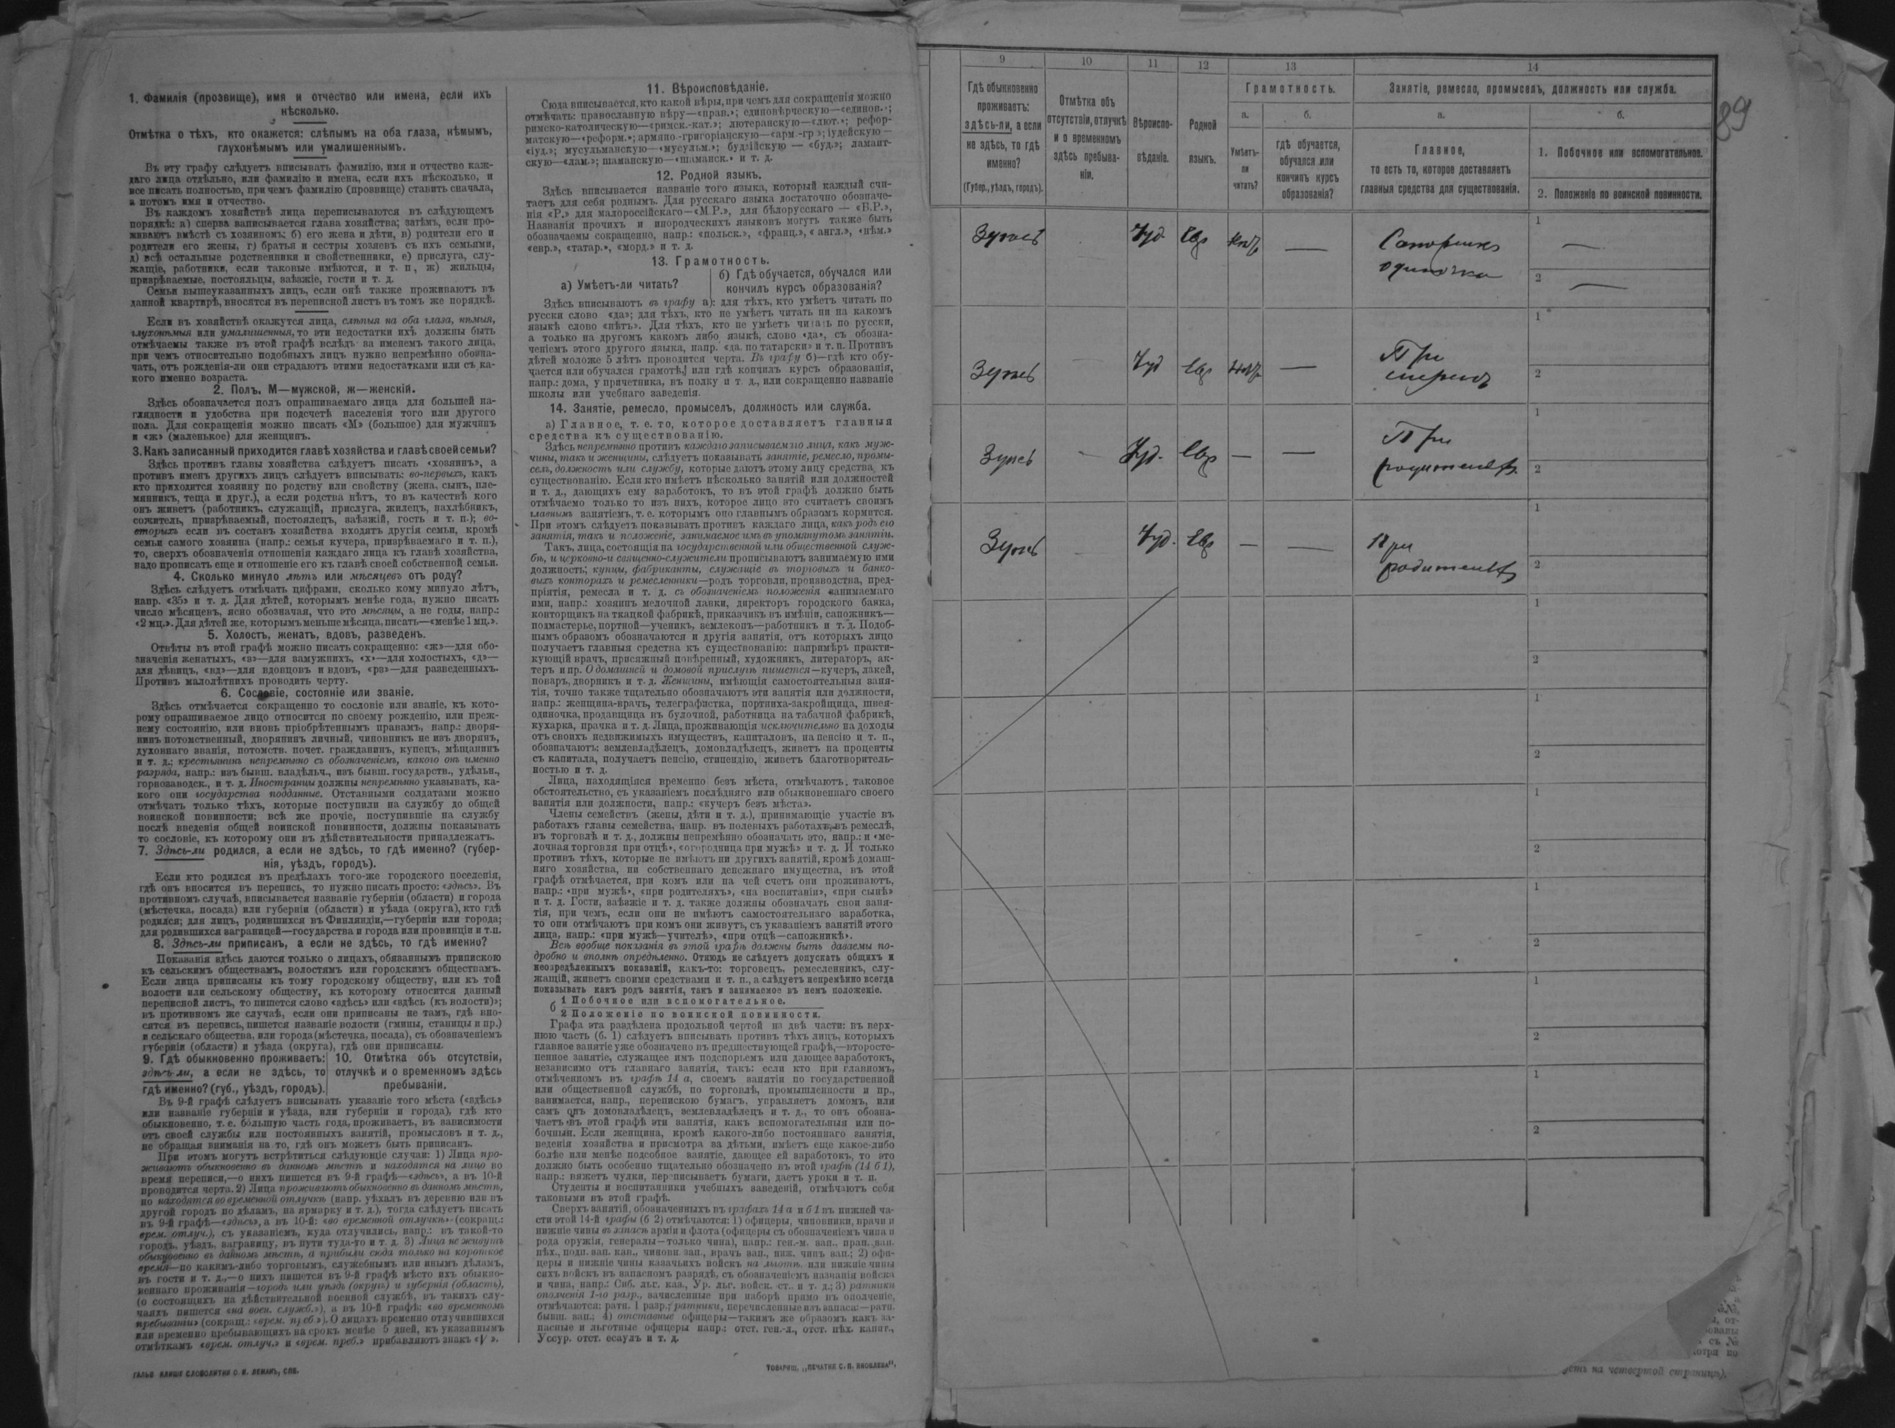 1. Фамилія (прозвище), имя и отчество или имена, если ихъ
нѣсколько.
Отмѣтка о тѣхъ, кто окажется: слѣпымъ на оба глаза, нѣмымъ,
глухонѣмымъ или умалишеннымъ.
Въ эту графу слѣдуетъ вписывать фамилію, имя и отчество каж-
даго лица отдѣльно, или фамилію и имена, если ихъ нѣсколько, и
все писать полностью, при чемъ фамилію (прозвище) ставить сначала,
а потомъ имя и отчество.
Въ каждомъ хозяйствѣ лица переписываются въ слѣдующемъ
порядкѣ: а) сперва записывается глава хозяйства; затѣмъ, если про-
живаютъ вмѣстѣ съ хозяиномъ: б) его жена и дѣти, в) родители его и
родители его жены, г) братья и сестры хозяевъ съ ихъ семьями,
д) всѣ остальные родственники и свойственники, е) прислуга, слу-
жащіе, работники, если таковые имѣются, и т. п., ж) жильцы,
призрѣваемые, постояльцы, заѣзжіе, гости и т. д.
Семьи вышеуказанныхъ лицъ, если онѣ также проживаютъ въ
данной квартирѣ, вносятся въ переписной листъ въ томъ же порядкѣ.
Если въ хозяйствѣ окажутся лица, слѣпыя на оба глаза, нѣмыя,
глухонѣмыя или умалишенныя, то эти недостатки ихъ должны быть
отмѣчаемы также въ этой графѣ вслѣдъ за именемъ такого лица,
при чемъ относительно подобныхъ лицъ нужно непремѣнно обозна-
чать, отъ рожденія-ли они страдаютъ этими недостатками или съ ка-
кого именно возраста.
2. Полъ. М—мужской, ж—женскій.
Здѣсь обозначается полъ опрашиваемаго лица для большей на-
глядности и удобства при подсчетѣ населенія того или другого
пола. Для сокращенія можно писать «М» (большое) для мужчинъ
и «ж» (маленькое) для женщинъ.
3. Какъ записанный приходится главѣ хозяйства и главѣ своей семьи?
Здѣсь противъ главы хозяйства слѣдуетъ писать «хозяинъ», а
противъ именъ другихъ лицъ слѣдуетъ вписывать: во-первыхъ, какъ
кто приходится хозяину по родству или свойству (жена, сынъ, пле-
мянникъ, теща и друг.), а если родства нѣтъ, то въ качествѣ кого
онъ живетъ (работникъ, служащій, прислуга, жилецъ, нахлѣбникъ,
сожитель, призрѣваемый, постоялецъ, заѣзжій, гость и т. п.); во-
вторыхъ если въ составъ хозяйства входятъ другія семьи, кромѣ
семьи самого хозяина (напр.: семья кучера, призрѣваемаго и т. п.),
то, сверхъ обозначенія отношенія каждаго лица къ главѣ хозяйства,
надо прописать еще и отношеніе его къ главѣ своей собственной семьи.
4. Сколько минуло лѣтъ или мѣсяцевъ отъ роду?
Здѣсь слѣдуетъ отмѣчать цифрами, сколько кому минуло лѣтъ,
напр. «35» и т. д. Для дѣтей, которымъ менѣе года, нужно писать
число мѣсяцевъ, ясно обозначая, что это мѣсяцы, а не годы, напр.:
«2 мц.». Для дѣтей же, которымъ меньше мѣсяца, писать—«менѣе 1 мц.».
5. Холостъ, женатъ, вдовъ, разведенъ.
Отвѣты въ этой графѣ можно писать сокращенно: «ж»—для обо-
значенія женатыхъ, «з»—для замужнихъ, «х»—для холостыхъ, «д»—
для дѣвицъ, «вд»—для вдовцовъ и вдовъ, «рз»—для разведенныхъ.
Противъ малолѣтнихъ проводить черту.
6. Сословіе, состояніе или званіе.
Здѣсь отмѣчается сокращенно то сословіе или званіе, къ кото-
рому опрашиваемое лицо относится по своему рожденію, или преж-
нему состоянію, или вновь пріобрѣтеннымъ правамъ, напр.: дворя-
нинъ потомственный, дворянинъ личный, чиновникъ не изъ дворянъ,
духовнаго званія, потомств. почет. гражданинъ, купецъ, мѣщанинъ
и т. д.; крестьянинъ непремѣнно съ обозначеніемъ, какого онъ именно
разряда, напр.: изъ бывш. владѣльч., изъ бывш. государств., удѣльн.,
горнозаводск., и т. д. Иностранцы должны непремѣнно указывать, ка-
кого они государства подданные. Отставными солдатами можно
отмѣчать только тѣхъ, которые поступили на службу до общей
воинской повинности; всѣ же прочіе, поступившіе на службу
послѣ введенія общей воинской повинности, должны показывать
то сословіе, къ которому они въ дѣйствительности принадлежатъ.
7. Здѣсь-ли родился, а если не здѣсь, то гдѣ именно? (губер-
нія, уѣздъ, городъ).
Если кто родился въ предѣлахъ того-же городского поселенія,
гдѣ онъ вносится въ перепись, то нужно писать просто: «здѣсь». Въ
противномъ случаѣ, вписывается названіе губерніи (области) и города
(мѣстечка, посада) или губерніи (области) и уѣзда (округа), кто гдѣ
родился; для лицъ, родившихся въ Финляндіи,—губерніи или города;
для родившихся заграницей—государства и города или провинціи и т.п.
8. Здѣсь-ли приписанъ, а если не здѣсь, то гдѣ именно?
Показанія здѣсь даются только о лицахъ, обязанныхъ припискою
къ сельскимъ обществамъ, волостямъ или городскимъ обществамъ.
Если лица приписаны къ тому городскому обществу, или къ той
волости или сельскому обществу, къ которому относится данный
переписной листъ, то пишется слово «здѣсь» или «здѣсь (къ волости)»;
въ противномъ же случаѣ, если они приписаны не тамъ, гдѣ вно-
сятся въ перепись, пишется названіе волости (гмины, станицы и пр.)
и сельскаго общества, или города (мѣстечка, посада), съ обозначеніемъ
губерніи (области) и уѣзда (округа), гдѣ они приписаны.
9. Гдѣ обыкновенно проживаетъ:
здѣсь-ли, а если не здѣсь, то
гдѣ именно? (губ., уѣздъ, городъ).
10. Отмѣтка объ отсутствіи,
отлучкѣ и о временномъ здѣсь
пребываніи.
Въ 9-й графѣ слѣдуетъ вписывать указаніе того мѣста («здѣсь»
или названіе губерніи и уѣзда, или губерніи и города), гдѣ кто
обыкновенно, т. е. большую часть года, проживаетъ, въ зависимости
отъ своей службы или постоянныхъ занятій, промысловъ и т. д.,
не обращая вниманія на то, гдѣ онъ можетъ быть приписанъ.
При этомъ могутъ встрѣтиться слѣдующіе случаи: 1) Лица про-
живаютъ обыкновенно въ данномъ мѣстѣ и находятся на лицо во
время переписи,—о нихъ пишется въ 9-й графѣ—«здѣсь», а въ 10-й
проводится черта. 2) Лица проживаютъ обыкновенно въ данномъ мѣстѣ,
но находятся во временной отлучкѣ (напр. уѣхалъ въ деревню или въ
другой городъ по дѣламъ, на ярмарку и т. д.), тогда слѣдуетъ писать
въ 9-й графѣ—«здѣсь», а въ 10-й: «во временной отлучкѣ» (сокращ.:
врем. отлуч.), съ указаніемъ, куда отлучились, напр.: въ такой-то
городъ, уѣздъ, заграницу, въ пути туда-то и т. д. 3) Лица не живутъ
обыкновенно въ данномъ мѣстѣ, а прибыли сюда только на короткое
время—по какимъ-либо торговымъ, служебнымъ или инымъ дѣламъ,
въ гости и т. д.,—о нихъ пишется въ 9-й графѣ мѣсто ихъ обыкно-
веннаго проживанія—городъ или уѣздъ (округъ) и губернія (область),
(о состоящихъ на дѣйствительной военной службѣ, въ такихъ слу-
чаяхъ пишется «на воен. службѣ»), а въ 10-й графѣ: «во временномъ
пребываніи» (сокращ.: «врем. преб.»). О лицахъ временно отлучившихся
или временно пребывающихъ на срокъ менѣе 5 дней, къ указаннымъ
отмѣткамъ «врем. отлуч.» и «врем. преб.» прибавляютъ знакъ «√».
11. Вѣроисповѣданіе.
Сюда вписывается, кто какой вѣры, при чемъ для сокращенія можно
отмѣчать: православную вѣру—«прав.»; единовѣрческую—«единов.»;
римско-католическую—«римск.-кат.»; лютеранскую—«лют.»; рефор-
матскую—«реформ.»; армяно-григоріанскую—«арм.-гр»; іудейскую—
«іуд.»; мусульманскую—«мусульм.»; буддійскую — «буд.»; ламаит-
скую—«лам.»; шаманскую—«шаманск.» и т. д.
12. Родной языкъ.
Здѣсь вписывается названіе того языка, который каждый счи-
таетъ для себя роднымъ. Для русскаго языка достаточно обозначе-
нія «Р.» для малороссійскаго—«М.Р.», для бѣлорусскаго — «Б.Р.»,
Названія прочихъ и инородческихъ языковъ могутъ также быть
обозначаемы сокращенно, напр.: «польск.», «франц.», «англ.», «нѣм.»
«евр.», «татар.», «морд.» и т. д.
13. Грамотность.
а) Умѣетъ-ли читать?
б) Гдѣ обучается, обучался или
кончилъ курсъ образованія?
Здѣсь вписываютъ въ графу а): для тѣхъ, кто умѣетъ читать по
русски слово «да»; для тѣхъ, кто не умѣетъ читать ни на какомъ
языкѣ слово «нѣтъ». Для тѣхъ, кто не умѣетъ читать по русски,
а только на другомъ какомъ либо языкѣ, слово «да», съ обозна-
ченіемъ этого другого языка, напр. «да, по татарски» и т. п. Противъ
дѣтей моложе 5 лѣтъ проводится черта. Въ графу б)—гдѣ кто обу-
чается или обучался грамотѣ, или гдѣ кончилъ курсъ образованія,
напр.: дома, у причетника, въ полку и т. д., или сокращенно названіе
школы или учебнаго заведенія.
14. Занятіе, ремесло, промыселъ, должность или служба.
а) Главное, т. е. то, которое доставляетъ главныя
средства къ существованію.
Здѣсь непремѣнно противъ каждаго записываемаго лица, какъ муж-
чины, такъ и женщины, слѣдуетъ показывать занятіе, ремесло, промы-
селъ, должность или службу, которые даютъ этому лицу средства, къ
существованію. Если кто имѣетъ нѣсколько занятій или должностей
и т. д., дающихъ ему заработокъ, то въ этой графѣ должно быть
отмѣчаемо только то изъ нихъ, которое лицо это считаетъ своимъ
главнымъ занятіемъ, т. е. которымъ оно главнымъ образомъ кормится.
При этомъ слѣдуетъ показывать противъ каждаго лица, какъ родъ его
занятія, такъ и положеніе, занимаемое имъ въ упомянутомъ занятіи.
Такъ, лица, состоящія на государственной или общественной служ-
бѣ, и церковно-и священно-служители прописываютъ занимаемую ими
должность; купцы, фабриканты, служащіе въ торговыхъ и банко-
выхъ конторахъ и ремесленники—родъ торговли, производства, пред-
пріятія, ремесла и т. д. съ обозначеніемъ положенія занимаемаго
ими, напр.: хозяинъ мелочной лавки, директоръ городского банка,
конторщикъ на ткацкой фабрикѣ, приказчикъ въ имѣніи, сапожникъ—
подмастерье, портной—ученикъ, землекопъ—работникъ и т. д. Подоб-
нымъ образомъ обозначаются и другія занятія, отъ которыхъ лицо
получаетъ главныя средства къ существованію: напримѣръ практи-
кующій врачъ, присяжный повѣренный, художникъ, литераторъ, ак-
теръ и пр. О домашней и домовой прислугѣ пишется—кучеръ, лакей,
поваръ, дворникъ и т. д. Женщины, имѣющія самостоятельныя заня-
тія, точно также тщательно обозначаютъ эти занятія или должности,
напр.: женщина-врачъ, телеграфистка, портниха-закройщица, швея-
одиночка, продавщица въ булочной, работница на табачной фабрикѣ,
кухарка, прачка и т. д. Лица, проживающія исключительно на доходы
отъ своихъ недвижимыхъ имуществъ, капиталовъ, на пенсію и т. п.,
обозначаютъ: землевладѣлецъ, домовладѣлецъ, живетъ на проценты
съ капитала, получаетъ пенсію, стипендію, живетъ благотворитель-
ностью и т. д.
Лица, находящіяся временно безъ мѣста, отмѣчаютъ, таковое
обстоятельство, съ указаніемъ послѣдняго или обыкновеннаго своего
занятія или должности, напр.: «кучеръ безъ мѣста».
Члены семействъ (жены, дѣти и т. д.), принимающіе участіе въ
работахъ главы семейства, напр. въ полевыхъ работахъ, въ ремеслѣ,
въ торговлѣ и т. д., должны непремѣнно обозначать это, напр.: и «ме-
лочная торговля при отцѣ», «огородница при мужѣ» и т. д. И только
противъ тѣхъ, которые не имѣютъ ни другихъ занятій, кромѣ домаш-
няго хозяйства, ни собственнаго денежнаго имущества, въ этой
графѣ отмѣчается, при комъ или на чей счетъ они проживаютъ,
напр.: «при мужѣ», «при родителяхъ», «на воспитаніи», «при сынѣ»
и т. д. Гости, заѣзжіе и т. д. также должны обозначать свои заня-
тія, при чемъ, если они не имѣютъ самостоятельнаго заработка,
то они отмѣчаютъ при комъ они живутъ, съ указаніемъ занятій этого
лица, напр.: «при мужѣ—учителѣ», «при отцѣ—сапожникѣ».
Всѣ вообще показанія въ этой графѣ должны быть даваемы по-
дробно и вполнѣ опредѣленно. Отнюдь не слѣдуетъ допускать общихъ и
неопредѣленныхъ показаній, какъ-то: торговецъ, ремесленникъ, слу-
жащій, живетъ своими средствами и т. п., а слѣдуетъ непремѣнно всегда
показывать какъ родъ занятія, такъ и занимаемое въ немъ положеніе.
б
1 Побочное или вспомогательное.
2 Положеніе по воинской повинности.
Графа эта раздѣлена продольной чертой на двѣ части: въ верх-
нюю часть (б. 1) слѣдуетъ вписывать противъ тѣхъ лицъ, которыхъ
главное занятіе уже обозначено въ предшествующей графѣ,—второсте-
пенное занятіе, служащее имъ подспорьемъ или дающее заработокъ,
независимо отъ главнаго занятія, такъ: если кто при главномъ,
отмѣченномъ въ графѣ 14 а, своемъ занятіи по государственной
или общественной службѣ, по торговлѣ, промышленности и пр.,
занимается, напр., перепискою бумагъ, управляетъ домомъ, или
самъ онъ домовладѣлецъ, землевладѣлецъ и т. д., то онъ обозна-
чаетъ въ этой графѣ эти занятія, какъ вспомогательныя или по-
бочныя. Если женщина, кромѣ какого-либо постояннаго занятія,
веденія хозяйства и присмотра за дѣтьми, имѣетъ еще какое-либо
болѣе или менѣе подсобное занятіе, дающее ей заработокъ, то это
должно быть особенно тщательно обозначено въ этой графѣ (14 б 1),
напр.: вяжетъ чулки, переписываетъ бумаги, даетъ уроки и т. п.
Студенты и воспитанники учебныхъ заведеній, отмѣчаютъ себя
таковыми въ этой графѣ.
Сверхъ занятій, обозначенныхъ въ графахъ 14 а и б 1 въ нижней ча-
сти этой 14-й графы (б 2) отмѣчаются: 1) офицеры, чиновники, врачи и
нижніе чины въ запасѣ арміи и флота (офицеры съ обозначеніемъ чина и
рода оружія, генералы—только чина), напр.: ген.-м. зап., прап. зап.
пѣх., подп. зап. кав., чиновн. зап., врачъ зап., ниж. чинъ зап.; 2) офи-
церы и нижніе чины казачьихъ войскъ на льготѣ или нижніе чины
сихъ войскъ въ запасномъ разрядѣ, съ обозначеніемъ названія войска
и чина, напр.: Сиб. льг. каз., Ур. льг. войск. ст. и т. д.; 3) ратники
ополченія 1-го разр., зачисленные при наборѣ прямо въ ополченіе,
отмѣчаются: ратн. 1 разр.; ратники, перечисленные изъ запаса:—ратн.
бывш. зап.; 4) отставные офицеры—такимъ же образомъ какъ за-
пасные и льготные офицеры напр.: отст. ген.-л., отст. пѣх. капит.,
Уссур. отст. есаулъ и т. д.
ТОВАРИЩ. „ПЕЧАТНЯ С. П. ЯКОВЛЕВА“,
89
9
10
11
12
13
14
Гдѣ обыкновенно
проживаетъ:
здѣсь-ли, а если
не здѣсь, то гдѣ
именно?
(Губер., уѣздъ, городъ).
Отмѣтка объ
отсутствіи, отлучкѣ
и о временномъ
здѣсь пребыва-
ніи.
Вѣроиспо-
вѣданіе.
Родной
языкъ.
Грамотность.
а.
Умѣетъ-
ли
читать?
б.
гдѣ обучается,
обучался или
кончилъ курсъ
образованія?
Занятіе, ремесло, промыселъ, должность или служба.
а.
Главное,
то есть то, которое доставляетъ
главныя средства для существованія.
б.
1. Побочное или вспомогательное.
2. Положеніе по воинской повинности.
Здѣсь Іуд. Евр нѣтъ — Сапожникъ
одиночка
1 —
2 —
Здѣсь — Іуд евр нѣтъ — При
1
2
Здѣсь — Іуд. евр — — При
родителяхъ
1
2
Здѣсь — Іуд. евр — — При
родителяхъ
1
2
1
2
1
2
1
2
1
2
1
2
1
2